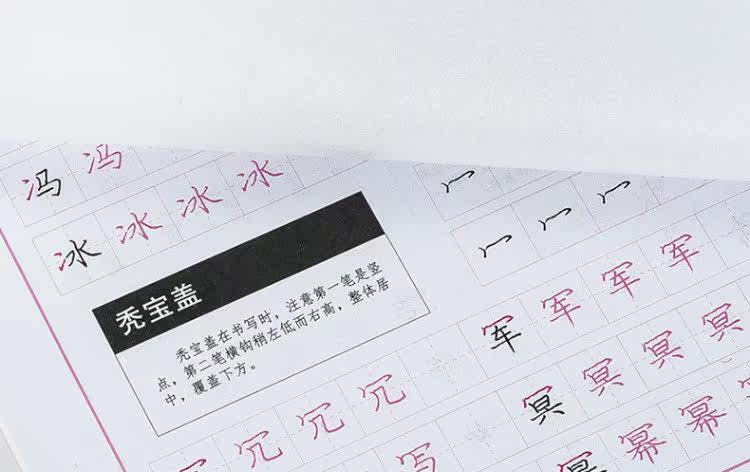 冯 冯
冰 冰 冰 冰
冖
冖 冖 冖
秃宝盖
秃宝盖在书写时，注意第一笔是竖
点，第二笔横钩稍左低而右高，整体居
中，覆盖下方。
军 军 军 军
冗 冗 冗 冗
冥 冥 冥 冥
写
幂 幂 幂